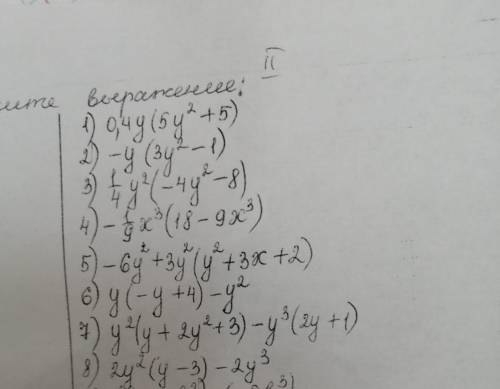 II
ите выражение:
1) 0,4y(5y²+5)
2) -y(3y²-1)
3) \frac{1}{4}y²(-4y²-8)
4) -\frac{1}{9}x³(18-9x³)
5) -6y²+3y²(y²+3x+2)
6) y(-y+4)-y²
7) y²(y+2y²+3)-y³(2y+1)
8) 2y²(y-3)-2y³